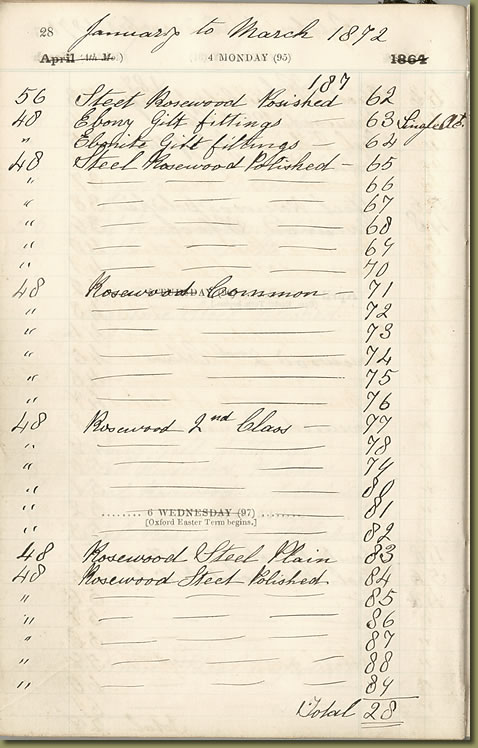 28 January to March 1872
April (4th Mo.) 4 MONDAY (95) 1864
187
56 Steel Rosewood Posished 62
48 Ebony Gilt fittings — 63 Single Act.
" Ebonite Gilt fittings — 64
48 Steel Rosewood Polished — 65
" — — — 66
" — — — 67
" — — — 68
" — — — 69
" — — — 70
48 Rosewood Common — 71
" — — — 72
" — — — 73
" — — 74
" — — 75
" — — 76
48 Rosewood 2nd Class — 77
" — — 78
" — — 79
" — — 80
" 6 WEDNESDAY (97) 81
[Oxford Easter Term begins.]
" — — 82
48 Rosewood Steel Plain 83
48 Rosewood Steel Polished 84
" — — — 85
" — — — 86
" — — — 87
" — — — 88
" — — — 89
Total 28